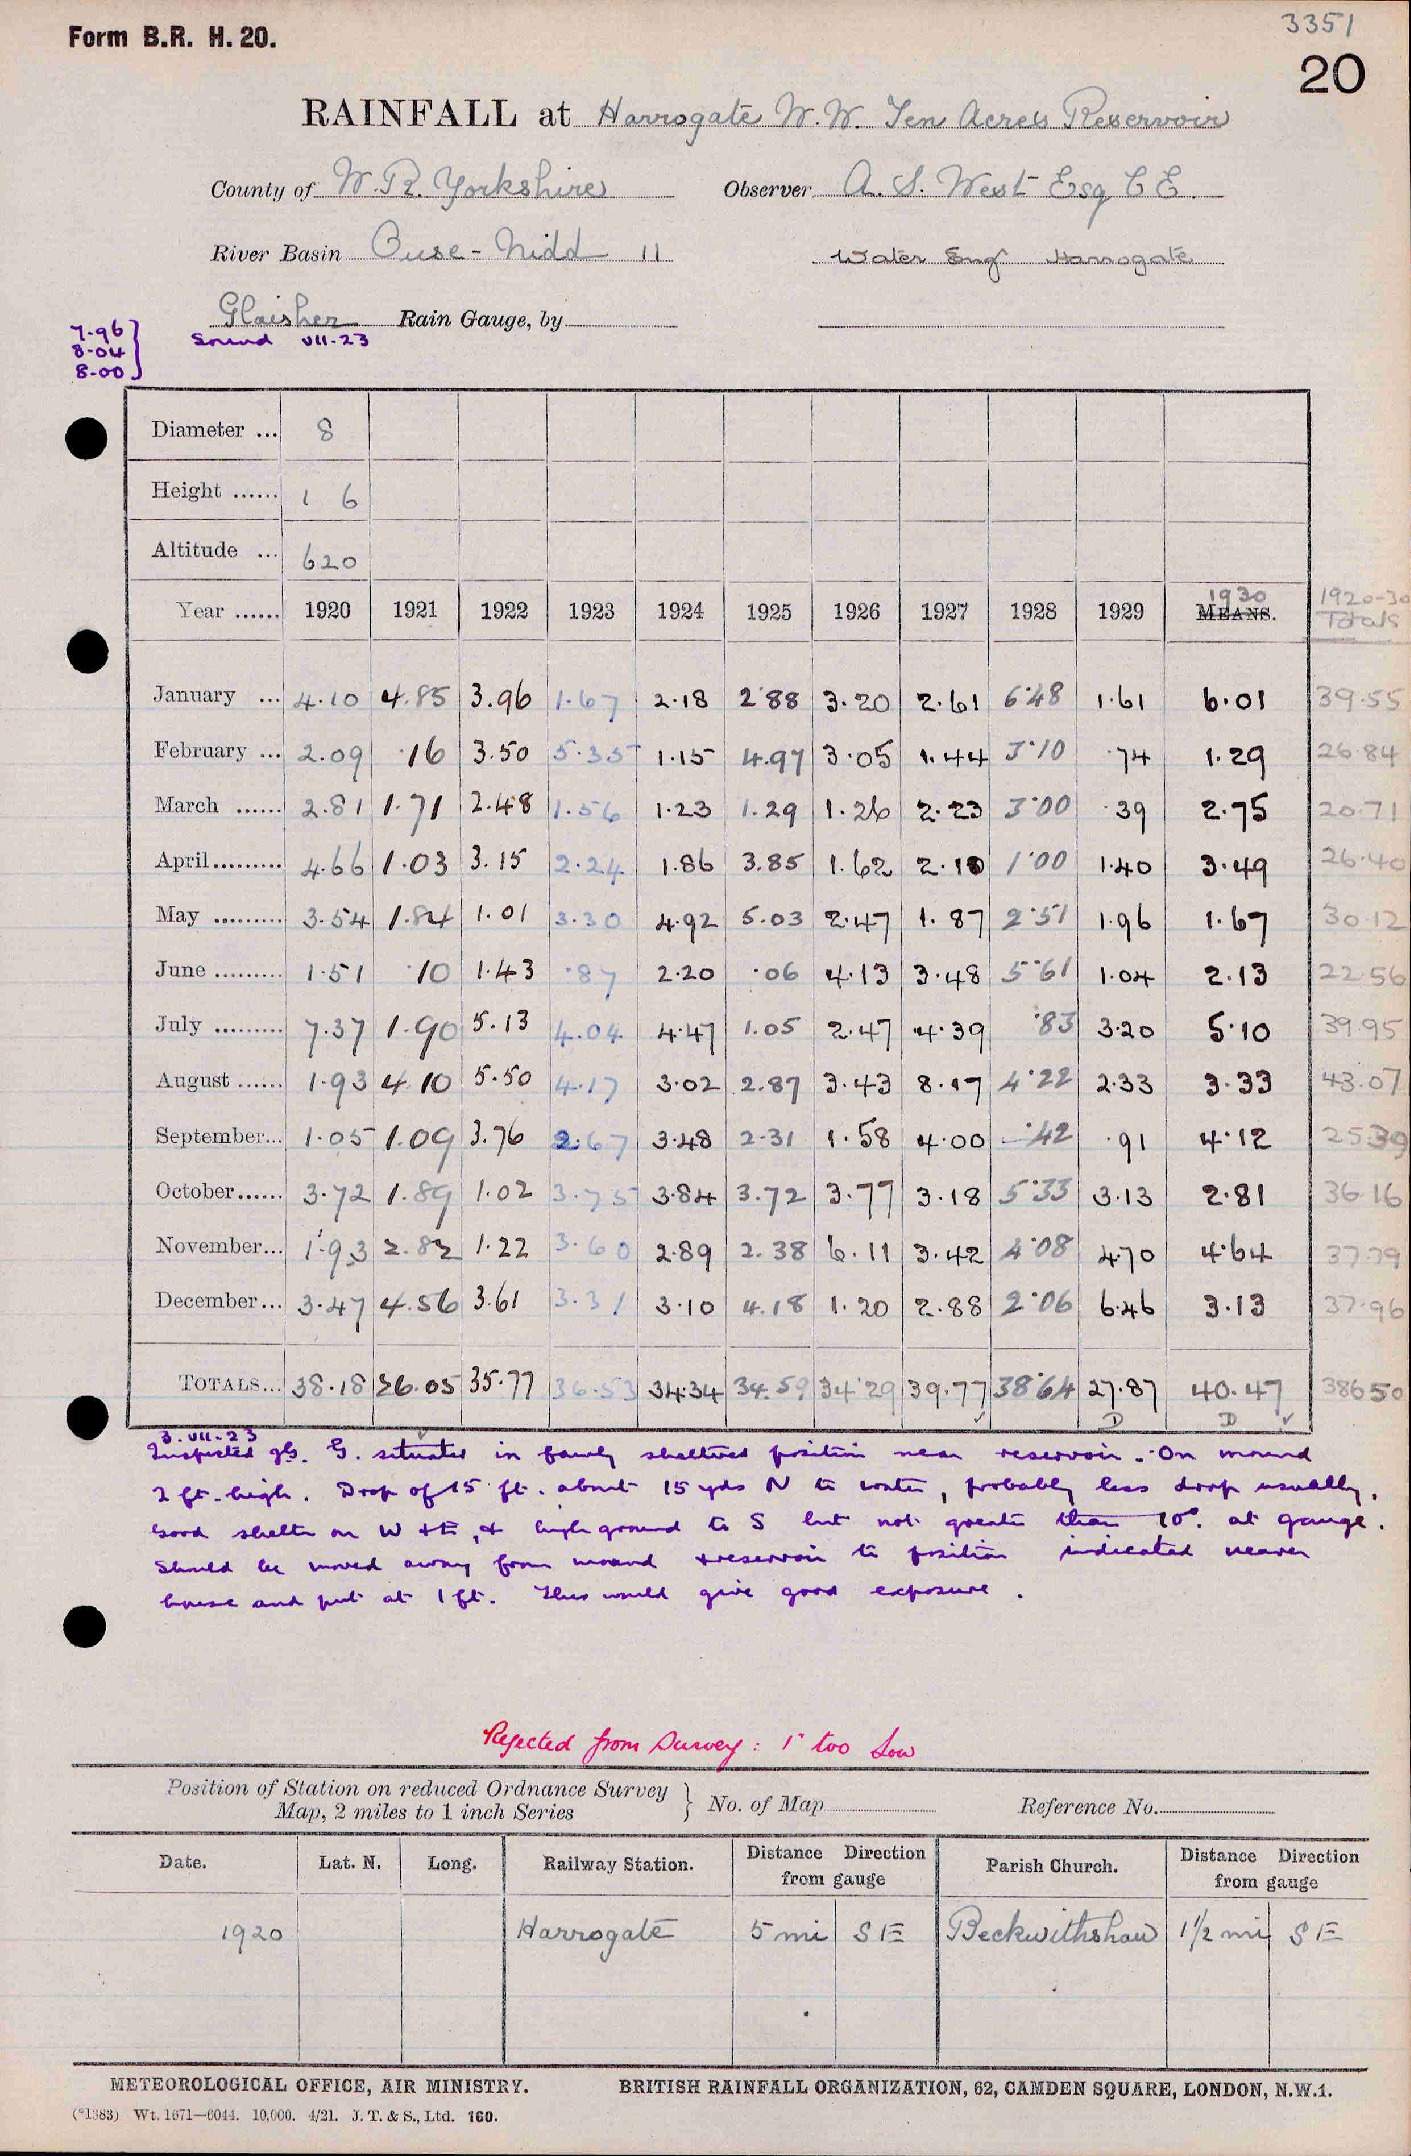 3351
Form B.R. H. 20.
20
RAINFALL at Harrogate W.W. Ten Acres Reservoir
County of W.R. Yorkshire Observer A. S. West Esq C E.
River Basin Ouse - Nidd 11 Water Engr Harrogate
Glaisher Rain Gauge, by
7.96
8.04
8.00
Sound VII.23
Diameter ... 8
Height ...... 1 6
Altitude ... 620
1930 1920-30
Year ...... 1920 1921 1922 1923 1924 1925 1926 1927 1928 1929 MEANS. Totals
January ... 4.10 4.85 3.96 1.67 2.18 2.88 3.20 2.61 6.48 1.61 6.01 39.55
February ... 2.09 .16 3.50 5.35 1.15 4.97 3.05 1.44 3.10 .74 1.29 26.84
March ...... 2.81 1.71 2.48 1.56 1.23 1.29 1.26 2.23 3.00 .39 2.75 20.71
April......... 4.66 1.03 3.15 2.24 1.86 3.85 1.62 2.10 1.00 1.40 3.49 26.40
May ......... 3.54 1.84 1.01 3.30 4.92 5.03 2.47 1.87 2.51 1.96 1.67 30.12
June ......... 1.51 .10 1.43 .87 2.20 .06 4.13 3.48 5.61 1.04 2.13 22.56
July ......... 7.37 1.90 5.13 4.04 4.47 1.05 2.47 4.39 .83 3.20 5.10 39.95
August ...... 1.93 4.10 5.50 4.17 3.02 2.87 3.43 8.17 4.22 2.33 3.33 43.07
September... 1.05 1.09 3.76 2.67 3.48 2.31 1.58 4.00 .42 .91 4.12 25.39
October...... 3.72 1.89 1.02 3.75 3.84 3.72 3.77 3.18 5.33 3.13 2.81 36.16
November... 1.93 2.82 1.22 3.60 2.89 2.38 6.11 3.42 4.08 4.70 4.64 37.79
December... 3.47 4.56 3.61 3.31 3.10 4.18 1.20 2.88 2.06 6.46 3.13 37.96
TOTALS... 38.18 26.05 35.77 36.53 34.34 34.59 34.29 39.77 38.64 27.87 40.47 386.50
D D
3.VII.23
Inspected G. situated in fairly sheltered position near reservoir. On mound
2 ft. high. Drop of 15 ft. about 15 yds N to water, probably less drop usually.
Good shelter on W + E, + high ground to S but not greater than 10°. at gauge.
Should be moved away from mound + reservoir to position indicated nearer
house and put at 1 ft. This would give good exposure.
Rejected from Survey: 1" too low
Position of Station on reduced Ordnance Survey
Map, 2 miles to 1 inch Series } No. of Map Reference No.
Date. Lat. N. Long. Railway Station. Distance Direction from gauge Parish Church. Distance Direction from gauge
1920 Harrogate 5 mi S E Beckwithshaw 1½ mi S E
METEOROLOGICAL OFFICE, AIR MINISTRY. BRITISH RAINFALL ORGANIZATION, 62, CAMDEN SQUARE, LONDON, N.W.1.
(*1383) Wt. 1671—6044. 10,000. 4/21. J. T. & S., Ltd. 160.